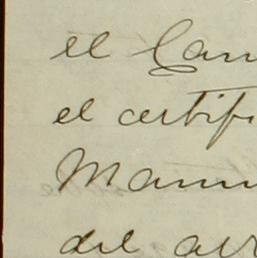 el Can
el certifi
Mann
del arr